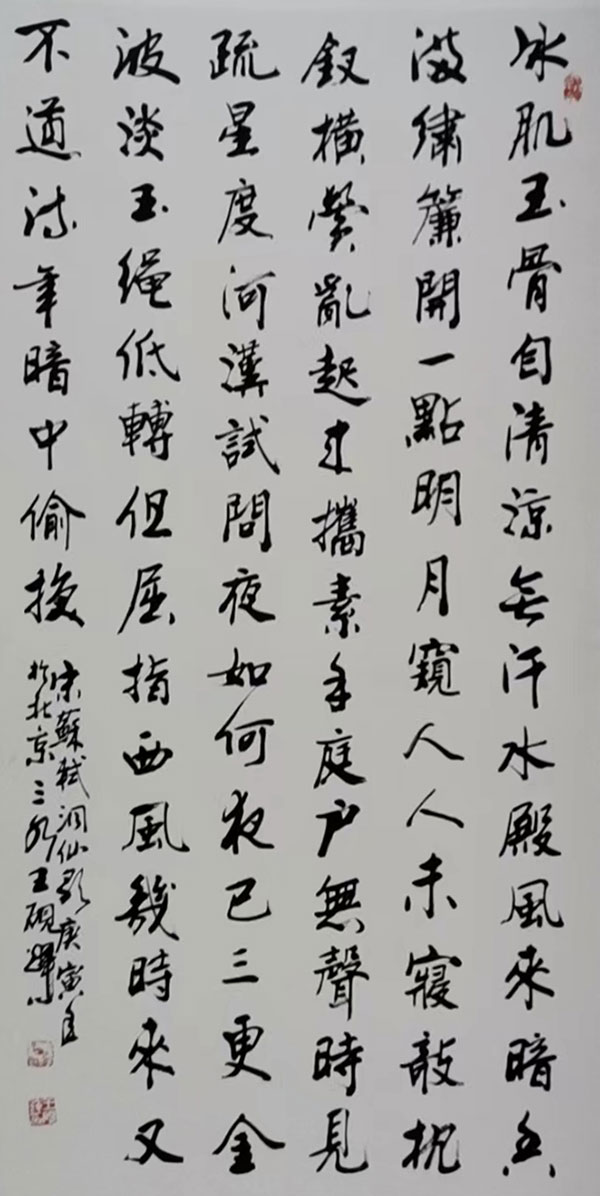 冰肌玉骨自清涼無汗水殿風來暗香
滿繡簾開一點明月窺人人未寢敧枕
釵橫鬢亂起來攜素手庭戶無聲時見
疏星度河漢試問夜如何夜已三更金
波淡玉繩低轉但屈指西風幾時來又
不道流年暗中偷換
宋蘇軾洞仙歌庚寅
於北京三王硯